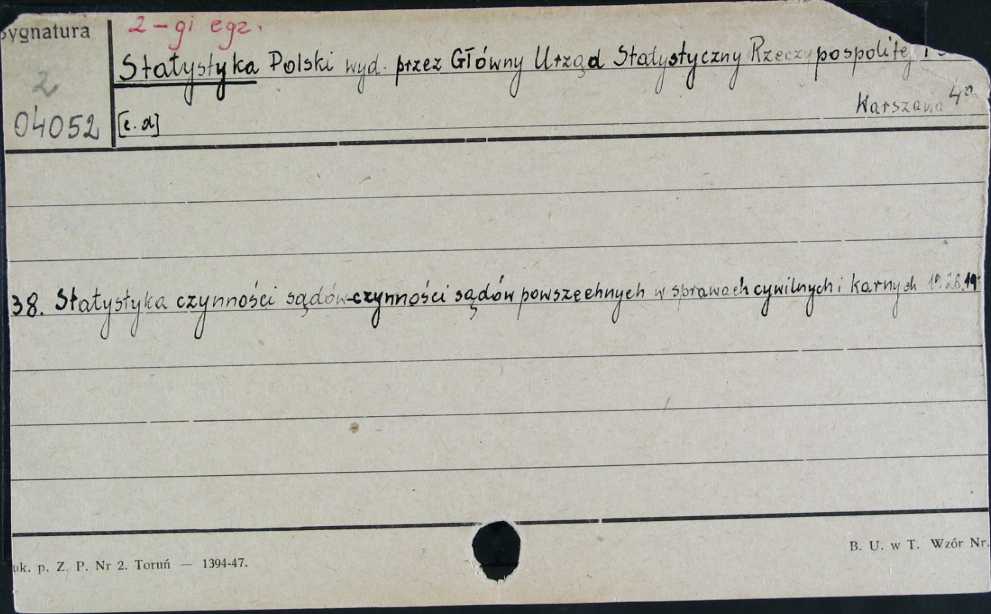 Sygnatura
2-gi egz.
Statystyka Polski wyd. przez Główny Urząd Statystyczny Rzeczypospolitej
2
Warszawa 4°
04052
[c.d]
38. Statystyka czynności sądów-czynności sądów powszechnych w sprawach cywilnych i karnych 1928, 19
uk. p. Z. P. Nr 2. Toruń — 1394-47.
B. U. w T. Wzór Nr.